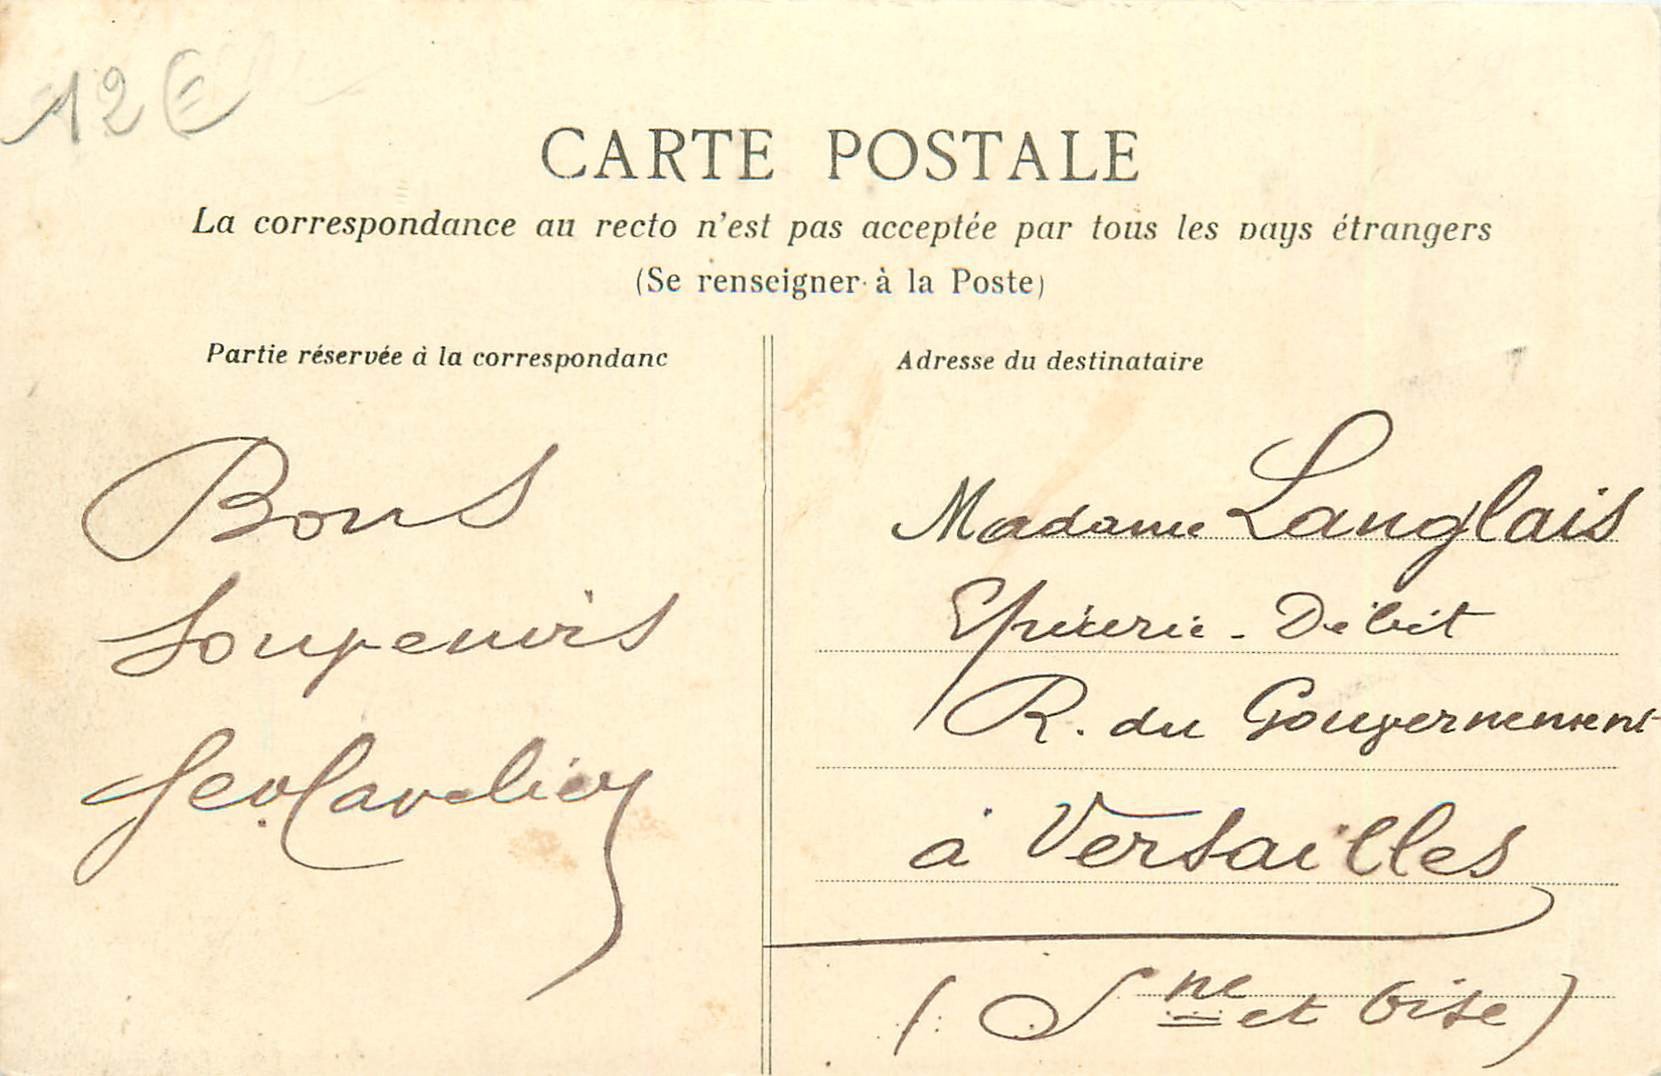 12€
CARTE POSTALE
La correspondance au recto n'est pas acceptée par tous les pays étrangers
(Se renseigner à la Poste)
Partie réservée à la correspondanc
Bons
Souvenirs
Adresse du destinataire
Madame Langlais
Epicerie - Débit
R. du Gouvernement
à Versailles
(Sne et Oise)